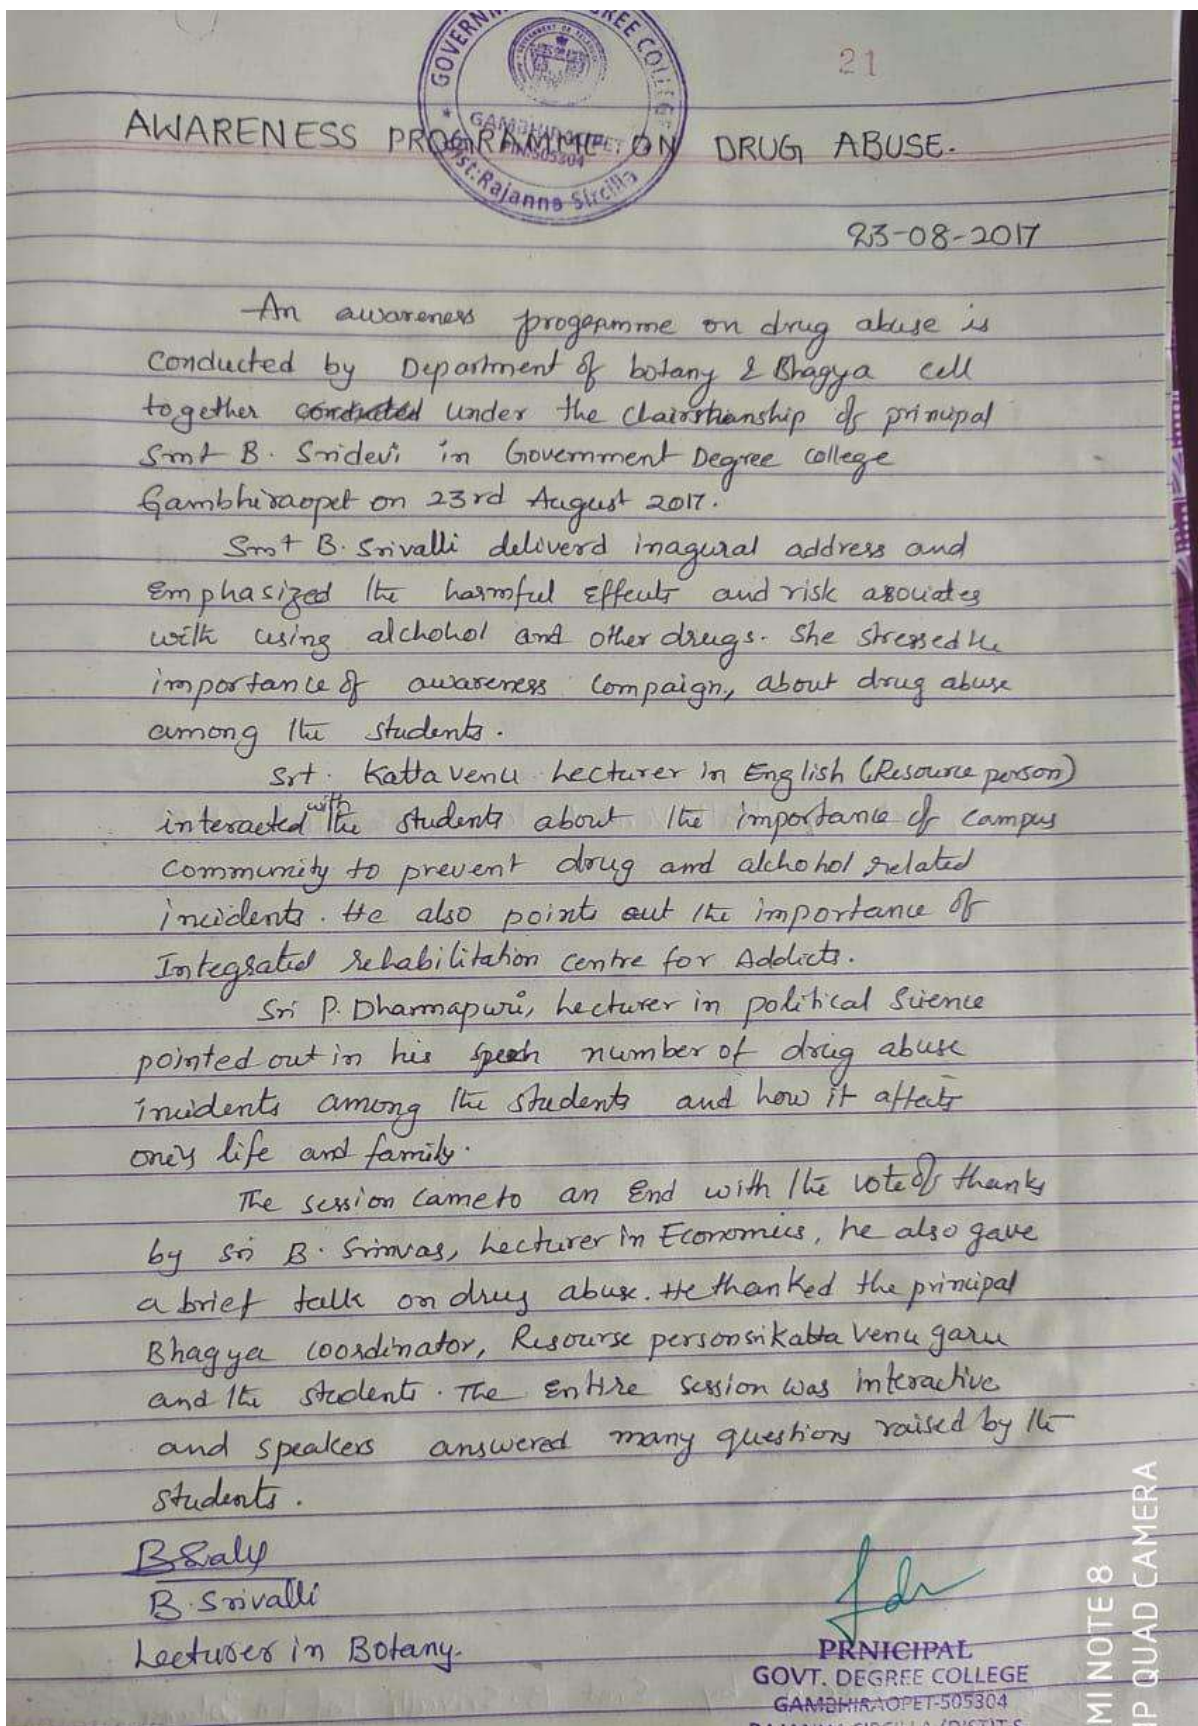 GOVERNMENT DEGREE COLLEGE
21
GAMBHIRAOPET
PIN:505304
Dist:Rajanna Sircilla
AWARENESS PROGRAMME ON DRUG ABUSE.
23-08-2017
An awareness progeamme on drug abuse is
Conducted by Department of botany & Bhagya cell
together conducted under the Chairstianship of principal
Smt B. Sridevi in Government Degree college
Gambhiraopet on 23rd August 2017.
Smt B. Srivalli deliverd inagural address and
Emphasized the harmful Effects and risk asouiates
with using alchohol and other drugs. She stressed the
importance of awareness Compaign, about drug abuse
among the students.
Srt. Katta venu Lecturer in English (Resource person)
interacted with the students about the importance of campus
Community to prevent drug and alchohol related
incidents. He also points out the importance of
Integrated rehabilitation centre for Addicts.
Sri P. Dharmapuri, Lecturer in political Science
pointed out in his speech number of drug abuse
incidents among the students and how it affects
one's life and family.
The session came to an End with the vote of thanks
by sri B. Srinvas, Lecturer in Economics, he also gave
a brief talk on drug abuse. He thanked the principal
Bhagya coordinator, Resourse person sri katta Venu garu
and the students. The Entire session was interactive
and speakers answered many questions raised by the
students.
B. Srivalli
Lecturer in Botany.
PRNICIPAL
GOVT. DEGREE COLLEGE
GAMBHIRAOPET-505304
MI NOTE 8
QUAD CAMERA